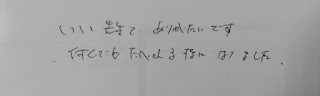 いい先生で ありがたいです
何くても たべれる様に なりました。